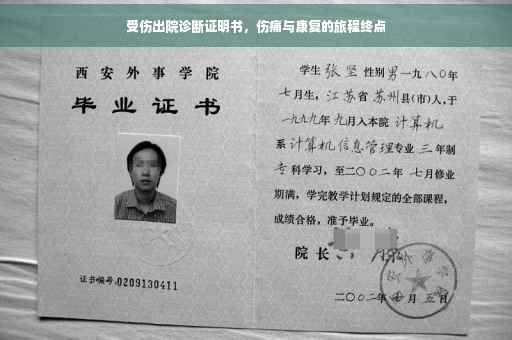 受伤出院诊断证明书，伤痛与康复的旅程终点
西安外事学院
毕业证书
证书编号:0209130411
学生 张坚 性别 男 一九八〇年
七月生，江苏省 苏州县(市)人,于
一九九九年 九月入本院 计算机
系 计算机信息管理专业 三 年制
专科学习，至二〇〇二年 七月修业
期满，学完教学计划规定的全部课程，
成绩合格，准予毕业。
院长
二〇〇二年 七月 五日